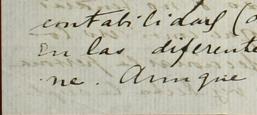 contabilidad (
en las diferente
ne. Aunque